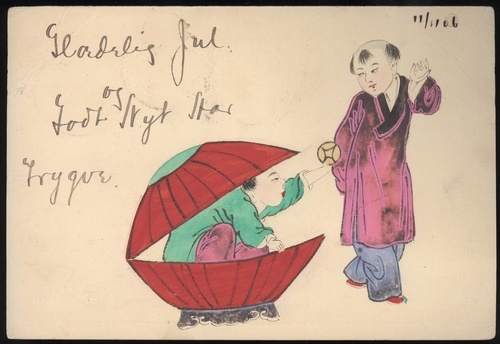 11/11 06
Glædelig Jul.
og
Godt Nyt Aar
Trygve.